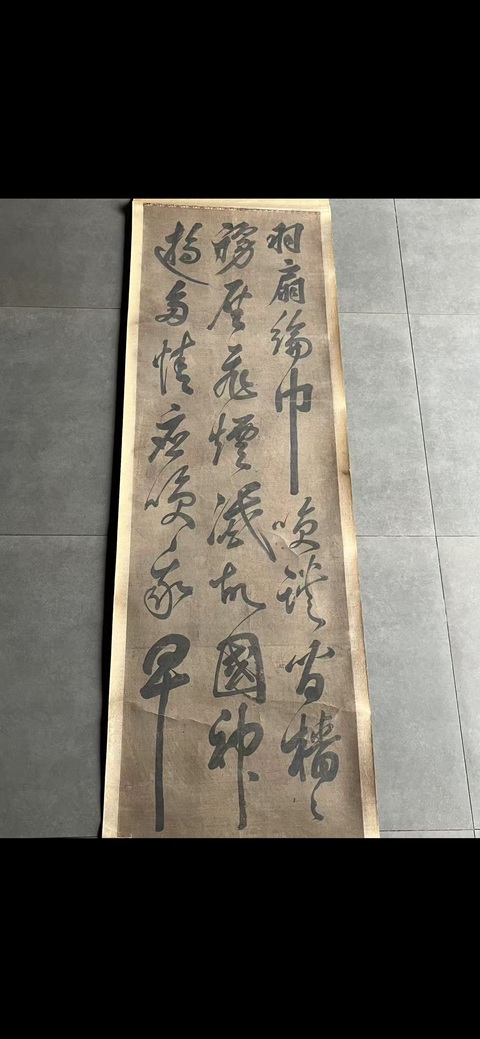 羽扇綸巾咲談間檣
灰飛煙滅故國神
遊多情應咲我早